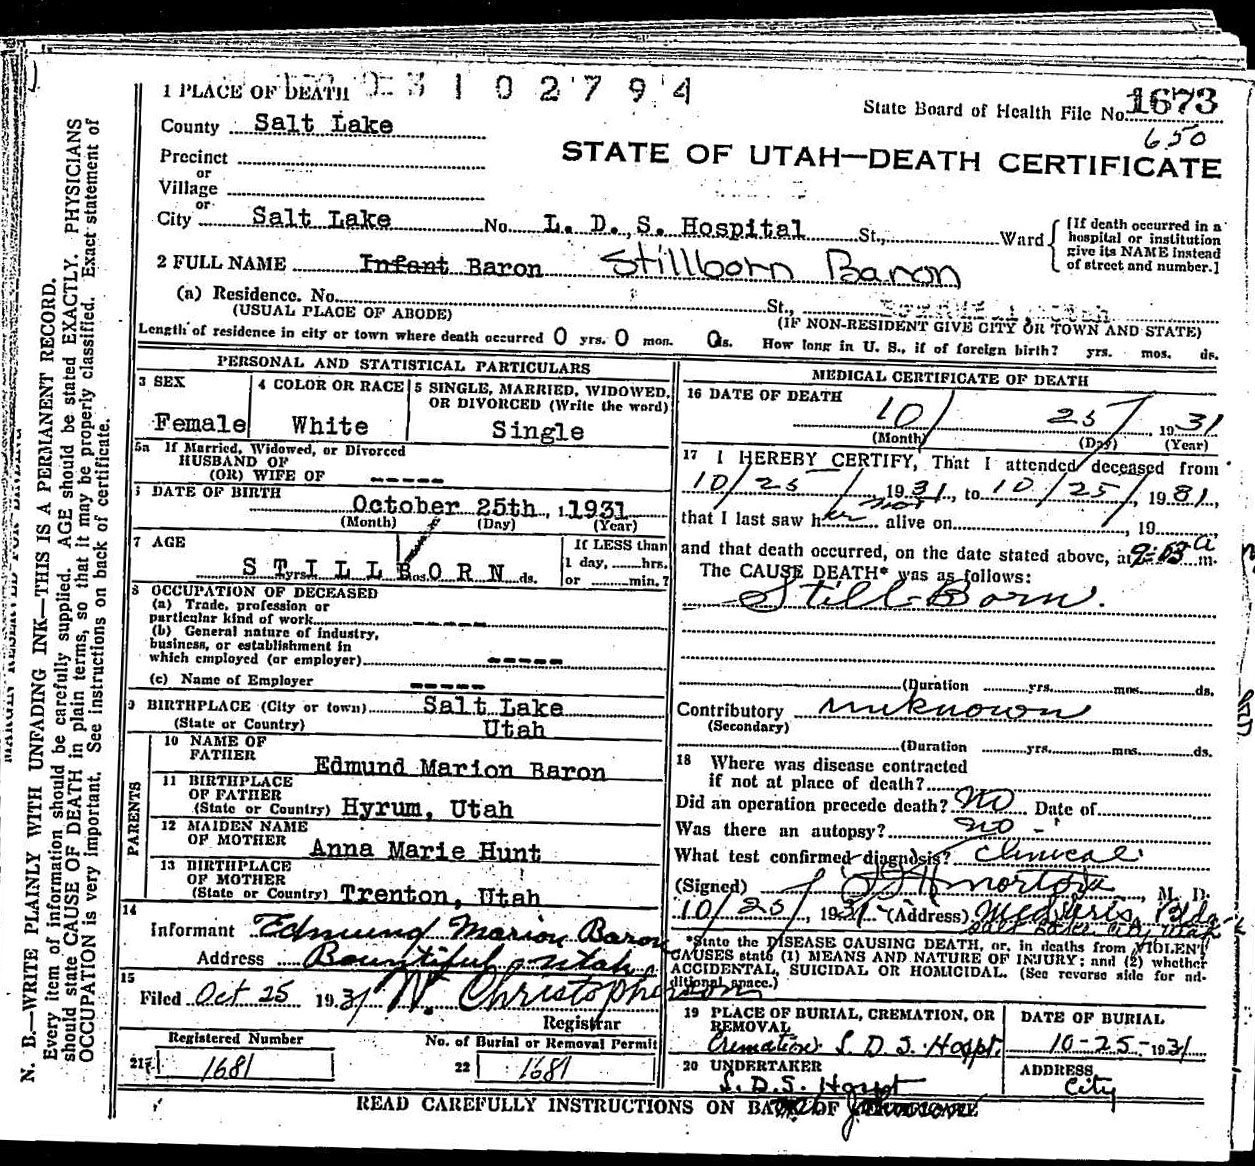 1 PLACE OF DEATH
3 1 0 2 7 9 4
State Board of Health File No. 1673
650
County Salt Lake
STATE OF UTAH—DEATH CERTIFICATE
Precinct
or
Village
or
City Salt Lake No. L. D. S. Hospital St., Ward
[If death occurred in a hospital or institution give its NAME instead of street and number.]
2 FULL NAME Infant Baron Stillborn Baron
(a) Residence. No. St.,
(USUAL PLACE OF ABODE) (IF NON-RESIDENT GIVE CITY OR TOWN AND STATE)
Length of residence in city or town where death occurred 0 yrs. 0 mos. 0 ds. How long in U. S., if of foreign birth? yrs. mos. ds.
PERSONAL AND STATISTICAL PARTICULARS
3 SEX
Female
4 COLOR OR RACE
White
5 SINGLE, MARRIED, WIDOWED, OR DIVORCED (Write the word)
Single
5a If Married, Widowed, or Divorced
HUSBAND OF
(OR) WIFE OF -----
DATE OF BIRTH
October 25th, 1931
(Month) (Day) (Year)
7 AGE
If LESS than
1 day, hrs.
or min.?
S T I L L B O R N
yrs. mos. ds.
8 OCCUPATION OF DECEASED
(a) Trade, profession or
particular kind of work -----
(b) General nature of industry,
business, or establishment in
which employed (or employer) -----
(c) Name of Employer -----
9 BIRTHPLACE (City or town) Salt Lake
(State or Country) Utah
PARENTS
10 NAME OF
FATHER Edmund Marion Baron
11 BIRTHPLACE
OF FATHER
(State or Country) Hyrum, Utah
12 MAIDEN NAME
OF MOTHER Anna Marie Hunt
13 BIRTHPLACE
OF MOTHER
(State or Country) Trenton, Utah
14
Informant Edmund Marion Baron
Address Bountiful, Utah
15
Filed Oct 25 1931 W. Christopherson
Registrar
Registered Number
21 1681
No. of Burial or Removal Permit
22 1681
MEDICAL CERTIFICATE OF DEATH
16 DATE OF DEATH
10/ 25/ 1931
(Month) (Day) (Year)
17 I HEREBY CERTIFY, That I attended deceased from
10/25/ 1931, to 10/25/, 1931,
that I last saw her not alive on , 19
and that death occurred, on the date stated above, at a m.
The CAUSE DEATH* was as follows:
Still-Born.
(Duration yrs. mos. ds.
Contributory unknown
(Secondary)
(Duration yrs. mos. ds.
18 Where was disease contracted
if not at place of death?
Did an operation precede death? No Date of
Was there an autopsy? no -
What test confirmed diagnosis? Clinical
(Signed) , M. D.
10/25, 1931 (Address)
Salt Lake City Utah
*State the DISEASE CAUSING DEATH, or, in deaths from VIOLENT
CAUSES state (1) MEANS AND NATURE OF INJURY; and (2) whether
ACCIDENTAL, SUICIDAL OR HOMICIDAL. (See reverse side for additional space.)
19 PLACE OF BURIAL, CREMATION, OR
REMOVAL
Cremation L. D. S. Hospt.
DATE OF BURIAL
10-25-1931
20 UNDERTAKER
L. D. S. Hospt
ADDRESS
City
READ CAREFULLY INSTRUCTIONS ON BACK OF
N. B.—WRITE PLAINLY WITH UNFADING INK—THIS IS A PERMANENT RECORD.
Every item of information should be carefully supplied. AGE should be stated EXACTLY. PHYSICIANS
should state CAUSE OF DEATH in plain terms, so that it may be properly classified. Exact statement of
OCCUPATION is very important. See instructions on back of certificate.